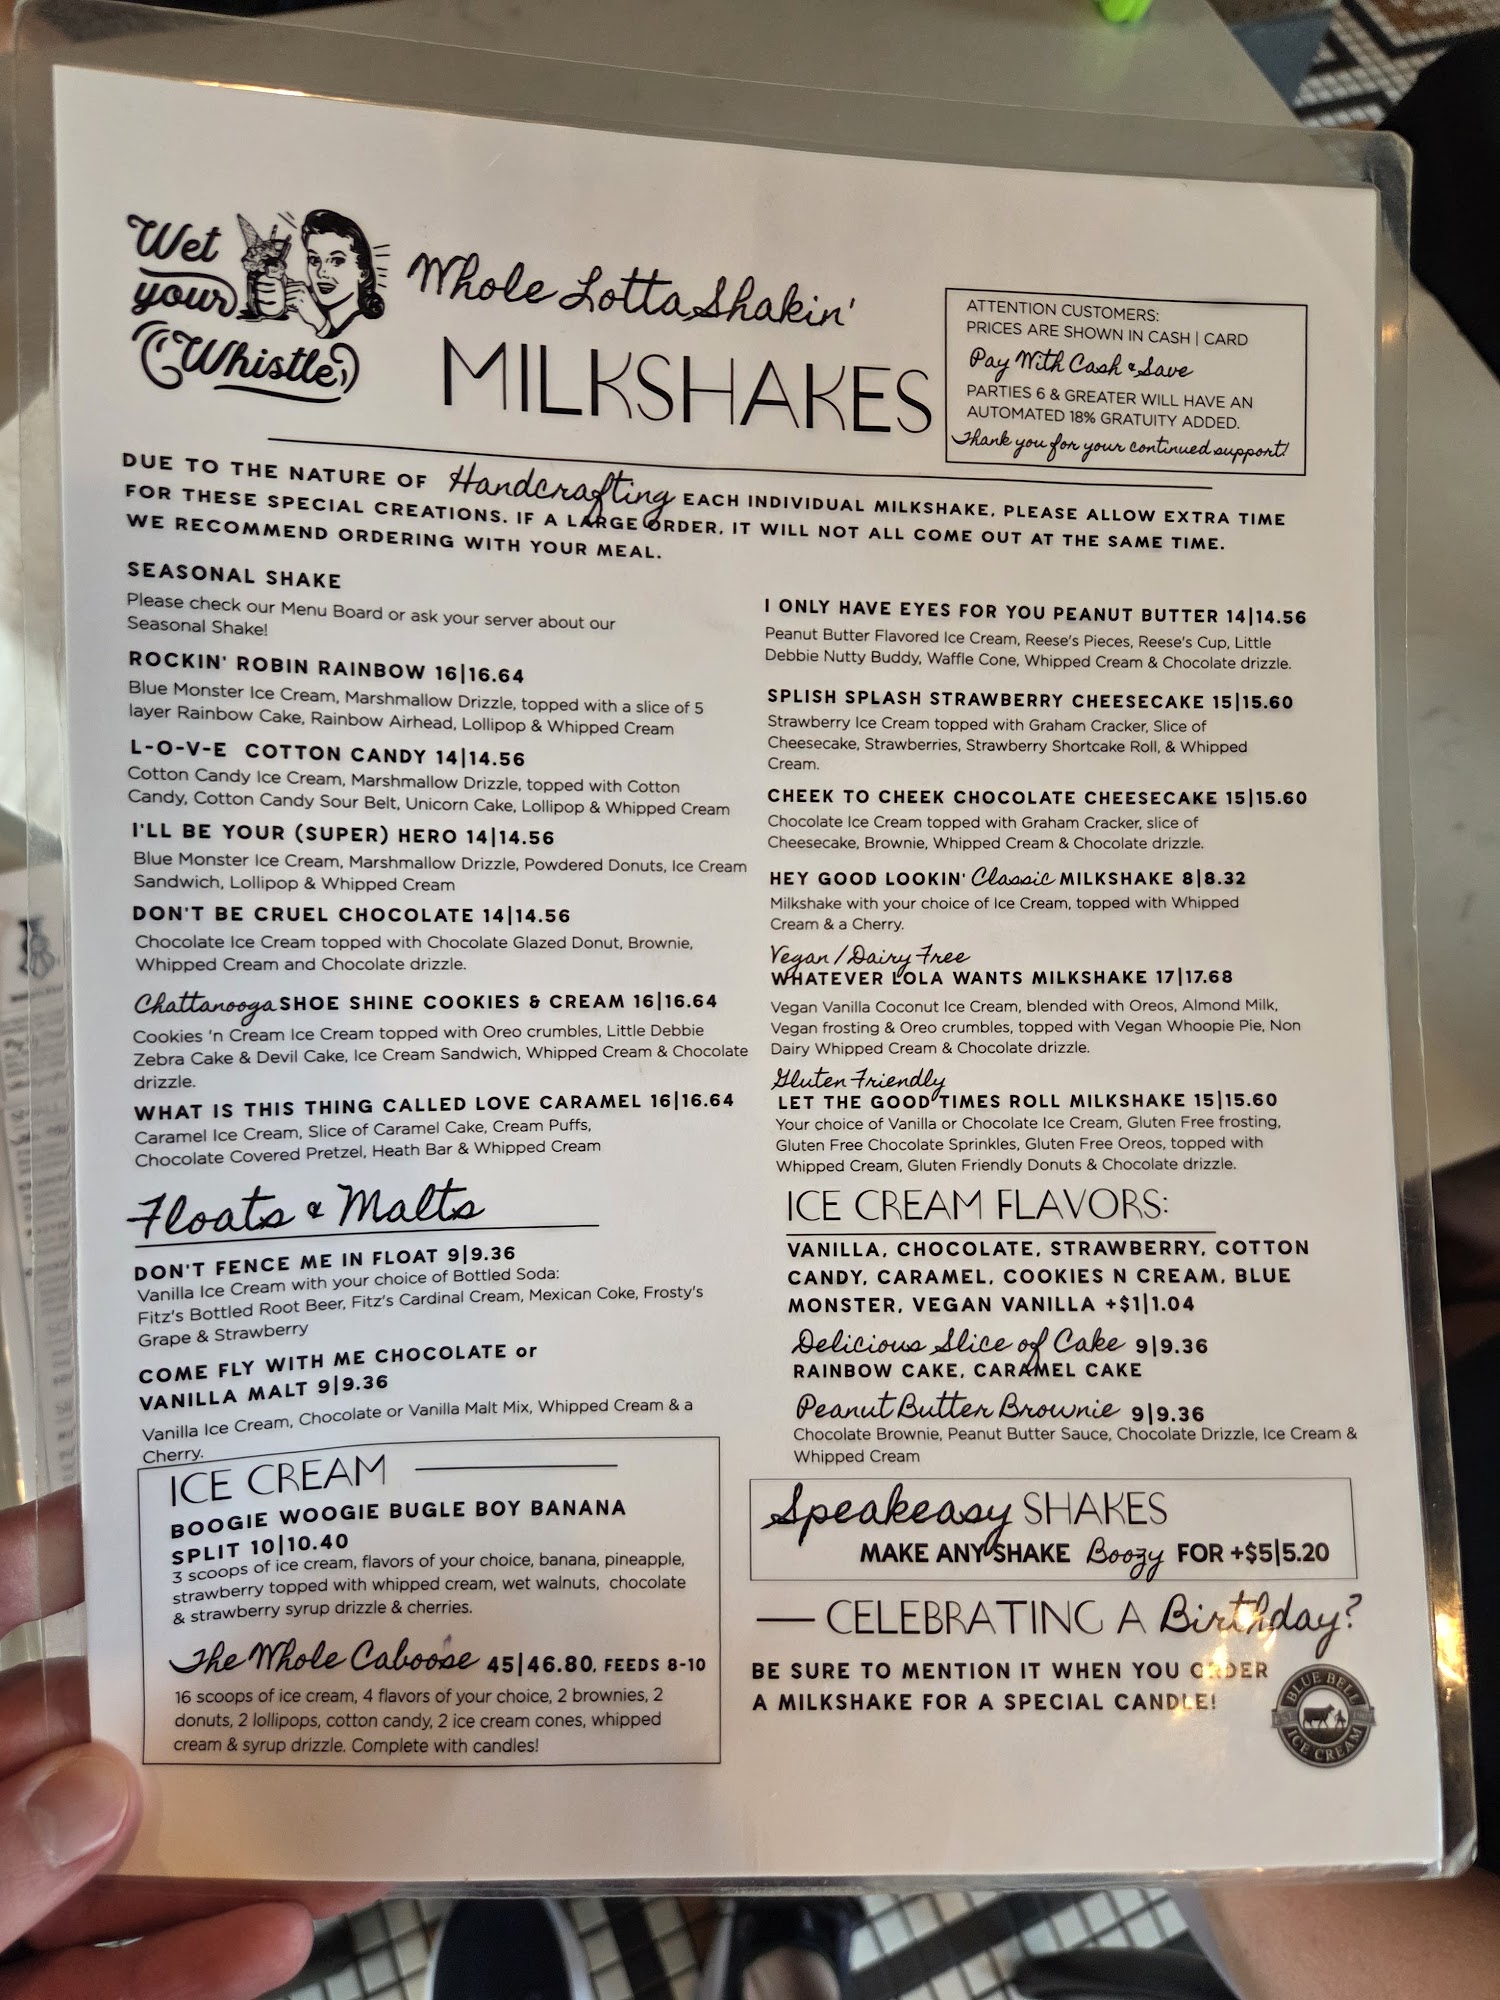 Wet
your
Whistle
Whole Lotta Shakin'
MILKSHAKES
ATTENTION CUSTOMERS:
PRICES ARE SHOWN IN CASH | CARD
Pay With Cash & Save
PARTIES 6 & GREATER WILL HAVE AN
AUTOMATED 18% GRATUITY ADDED.
Thank you for your continued support!
DUE TO THE NATURE OF Handcrafting EACH INDIVIDUAL MILKSHAKE, PLEASE ALLOW EXTRA TIME
FOR THESE SPECIAL CREATIONS. IF A LARGE ORDER, IT WILL NOT ALL COME OUT AT THE SAME TIME.
WE RECOMMEND ORDERING WITH YOUR MEAL.
SEASONAL SHAKE
Please check our Menu Board or ask your server about our
Seasonal Shake!
ROCKIN' ROBIN RAINBOW 16|16.64
Blue Monster Ice Cream, Marshmallow Drizzle, topped with a slice of 5
layer Rainbow Cake, Rainbow Airhead, Lollipop & Whipped Cream
L-O-V-E COTTON CANDY 14|14.56
Cotton Candy Ice Cream, Marshmallow Drizzle, topped with Cotton
Candy, Cotton Candy Sour Belt, Unicorn Cake, Lollipop & Whipped Cream
I'LL BE YOUR (SUPER) HERO 14|14.56
Blue Monster Ice Cream, Marshmallow Drizzle, Powdered Donuts, Ice Cream
Sandwich, Lollipop & Whipped Cream
DON'T BE CRUEL CHOCOLATE 14|14.56
Chocolate Ice Cream topped with Chocolate Glazed Donut, Brownie,
Whipped Cream and Chocolate drizzle.
Chattanooga SHOE SHINE COOKIES & CREAM 16|16.64
Cookies 'n Cream Ice Cream topped with Oreo crumbles, Little Debbie
Zebra Cake & Devil Cake, Ice Cream Sandwich, Whipped Cream & Chocolate
drizzle.
WHAT IS THIS THING CALLED LOVE CARAMEL 16|16.64
Caramel Ice Cream, Slice of Caramel Cake, Cream Puffs,
Chocolate Covered Pretzel, Heath Bar & Whipped Cream
Floats & Malts
DON'T FENCE ME IN FLOAT 9|9.36
Vanilla Ice Cream with your choice of Bottled Soda:
Fitz's Bottled Root Beer, Fitz's Cardinal Cream, Mexican Coke, Frosty's
Grape & Strawberry
COME FLY WITH ME CHOCOLATE or
VANILLA MALT 9|9.36
Vanilla Ice Cream, Chocolate or Vanilla Malt Mix, Whipped Cream & a
Cherry.
ICE CREAM
BOOGIE WOOGIE BUGLE BOY BANANA
SPLIT 10|10.40
3 scoops of ice cream, flavors of your choice, banana, pineapple,
strawberry topped with whipped cream, wet walnuts, chocolate
& strawberry syrup drizzle & cherries.
The Whole Caboose 45|46.80, FEEDS 8-10
16 scoops of ice cream, 4 flavors of your choice, 2 brownies, 2
donuts, 2 lollipops, cotton candy, 2 ice cream cones, whipped
cream & syrup drizzle. Complete with candles!
I ONLY HAVE EYES FOR YOU PEANUT BUTTER 14|14.56
Peanut Butter Flavored Ice Cream, Reese's Pieces, Reese's Cup, Little
Debbie Nutty Buddy, Waffle Cone, Whipped Cream & Chocolate drizzle.
SPLISH SPLASH STRAWBERRY CHEESECAKE 15|15.60
Strawberry Ice Cream topped with Graham Cracker, Slice of
Cheesecake, Strawberries, Strawberry Shortcake Roll, & Whipped
Cream.
CHEEK TO CHEEK CHOCOLATE CHEESECAKE 15|15.60
Chocolate Ice Cream topped with Graham Cracker, slice of
Cheesecake, Brownie, Whipped Cream & Chocolate drizzle.
HEY GOOD LOOKIN' Classic MILKSHAKE 8|8.32
Milkshake with your choice of Ice Cream, topped with Whipped
Cream & a Cherry.
Vegan/Dairy Free
WHATEVER LOLA WANTS MILKSHAKE 17|17.68
Vegan Vanilla Coconut Ice Cream, blended with Oreos, Almond Milk,
Vegan frosting & Oreo crumbles, topped with Vegan Whoopie Pie, Non
Dairy Whipped Cream & Chocolate drizzle.
Gluten Friendly
LET THE GOOD TIMES ROLL MILKSHAKE 15|15.60
Your choice of Vanilla or Chocolate Ice Cream, Gluten Free frosting,
Gluten Free Chocolate Sprinkles, Gluten Free Oreos, topped with
Whipped Cream, Gluten Friendly Donuts & Chocolate drizzle.
ICE CREAM FLAVORS:
VANILLA, CHOCOLATE, STRAWBERRY, COTTON
CANDY, CARAMEL, COOKIES N CREAM, BLUE
MONSTER, VEGAN VANILLA +$1|1.04
Delicious Slice of Cake 9|9.36
RAINBOW CAKE, CARAMEL CAKE
Peanut Butter Brownie 9|9.36
Chocolate Brownie, Peanut Butter Sauce, Chocolate Drizzle, Ice Cream &
Whipped Cream
Speakeasy SHAKES
MAKE ANY SHAKE Boozy FOR +$5|5.20
CELEBRATING A Birthday?
BE SURE TO MENTION IT WHEN YOU ORDER
A MILKSHAKE FOR A SPECIAL CANDLE!
BLUE BELL
ICE CREAM